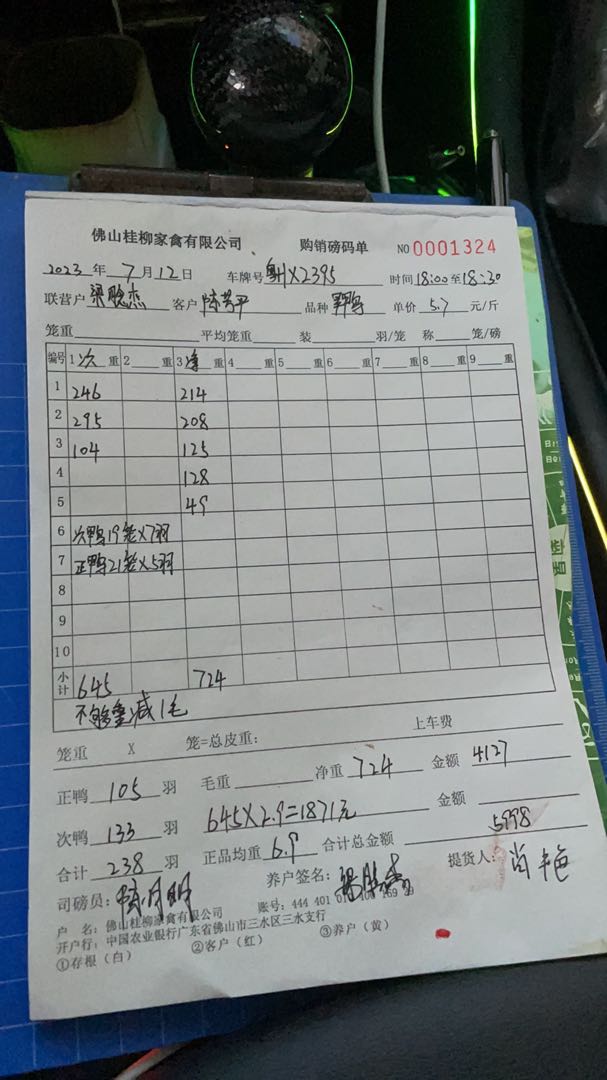 佛山桂柳家禽有限公司 购销磅码单 NO 0001324
2023年7月12日 车牌号 X2395 时间 18:00至18:30
联营户 梁聪杰 客户 陈芳平 品种 单价 5.7 元/斤
笼重 平均笼重 装 羽/笼 称 笼/磅
编号 1 次 重 2 重 3 净 重 4 重 5 重 6 重 7 重 8 重 9 重
1 246 214
2 295 208
3 104 125
4 128
5 49
6 次鸭19笼X7羽
7 正鸭21笼X5羽
8
9
10
小计 645 724
不够重减1毛
笼重 X 笼=总皮重: 上车费
正鸭 105 羽 毛重 净重 724 金额 4127
次鸭 133 羽 645X2.9=1871元 金额
合计 238 羽 正品均重 6.9 合计总金额 5998
司磅员: 养户签名: 提货人:
户 名: 佛山桂柳家禽有限公司 账号: 444 401
开户行: 中国农业银行广东省佛山市三水区三水支行
①存根（白） ②客户（红） ③养户（黄）